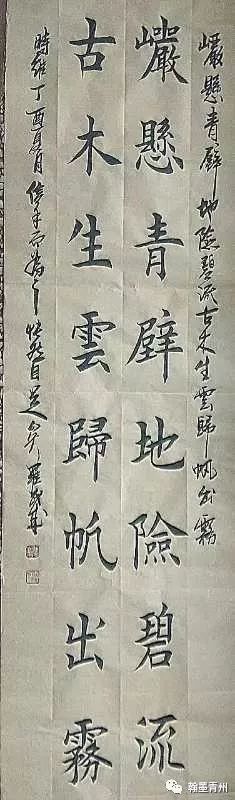 巗懸青壁地險碧流古木生雲歸帆出霧
巗懸青壁地險碧流
古木生雲歸帆出霧
時維丁酉月信手而為之快然自足矣羅
翰墨青州